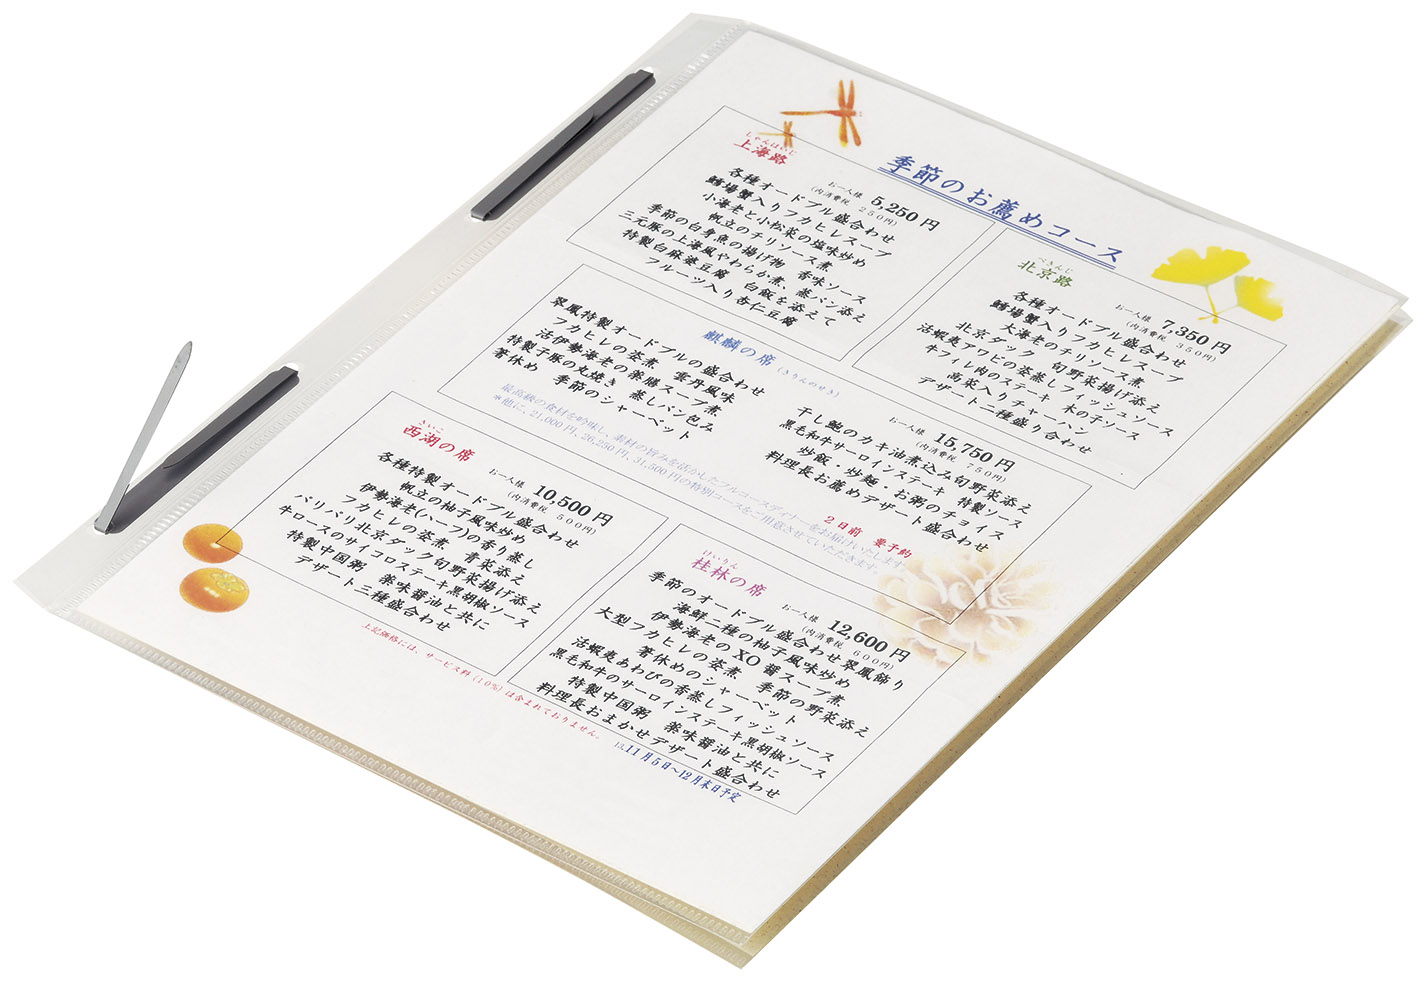 季節のお薦めコース
しゃんはいじ
上海路
お一人様 5,250円
(内消費税 250円)
各種オードブル盛合わせ
鱈場蟹入りフカヒレスープ
小海老と小松菜の塩味炒め
帆立のチリソース煮
季節の白身魚の揚げ物 香味ソース
三元豚の上海風やわらか煮、蒸パン添え
特製白麻婆豆腐 白飯を添えて
フルーツ入り杏仁豆腐
ぺきんじ
北京路
お一人様 7,350円
(内消費税 350円)
各種オードブル盛合わせ
鱈場蟹入りフカヒレスープ
大海老のチリソース煮
北京ダック 旬野菜揚げ添え
活蝦夷アワビの姿蒸しフィッシュソース
牛フィレ肉のステーキ 木の子ソース
高菜入りチャーハン
デザート二種盛り合わせ
麒麟の席 (きりんのせき)
翠鳳特製オードブルの盛合わせ
フカヒレの姿煮 雲丹風味
活伊勢海老の薬膳スープ煮
特製子豚の丸焼き 蒸しパン包み
箸休め 季節のシャーベット
お一人様 15,750円
(内消費税 750円)
干し鮑のカキ油煮込み旬野菜添え
黒毛和牛サーロインステーキ 特製ソース
炒飯・炒麺・お粥のチョイス
料理長お薦めデザート盛合わせ
最高級の食材を吟味し、素材の旨みを活かしたフルコースディナーをお届けいたします。
※他に、21,000円、26,250円、31,500円の特別コースをご用意させていただきます。
2日前 要予約
さいこ
西湖の席
お一人様 10,500円
(内消費税 500円)
各種特製オードブル盛合わせ
帆立の柚子風味炒め
伊勢海老(ハーフ)の香り蒸し
フカヒレの姿煮 青菜添え
パリパリ北京ダック旬野菜揚げ添え
牛ロースのサイコロステーキ黒胡椒ソース
特製中国粥 薬味醤油と共に
デザート二種盛合わせ
けいりん
桂林の席
お一人様 12,600円
(内消費税 600円)
季節のオードブル盛合わせ翠鳳飾り
海鮮二種の柚子風味炒め
伊勢海老のXO醤スープ煮
大型フカヒレの姿煮 季節の野菜添え
箸休めのシャーベット
活蝦夷あわびの香蒸しフィッシュソース
黒毛和牛のサーロインステーキ黒胡椒ソース
特製中国粥 薬味醤油と共に
料理長おまかせデザート盛合わせ
上記価格には、サービス料(10%)は含まれておりません。
11月5日~12月末日予定